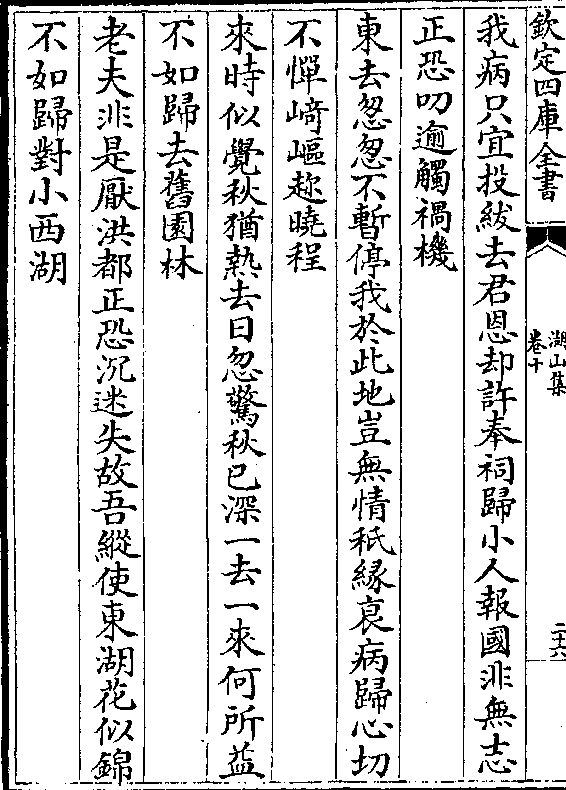 欽定四庫全書
湖山集
卷十
二十六
我病只宜投紱去君恩却許奉祠歸小人報國非無志
正恐叨逾觸禍機
東去怱怱不暫停我於此地豈無情秖緣衰病歸心切
不憚﨑嶇趂曉程
來時似覺秋猶熱去日忽驚秋已深一去一來何所益
不如歸去舊園林
老夫非是厭洪都正恐沉迷失故吾縱使東湖花似錦
不如歸對小西湖